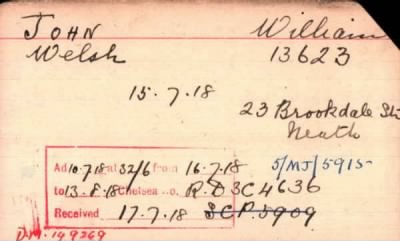 JOHN William
Welsh 13623
15.7.18
23 Brookdale St
Neath
Ad 10.7.18 at 32/6 from 16.7.18 5/MJ/5915
to 13.8.18 Chelsea No. R.D 3C4636
Received 17.7.18 S.C.P. 5909
149269